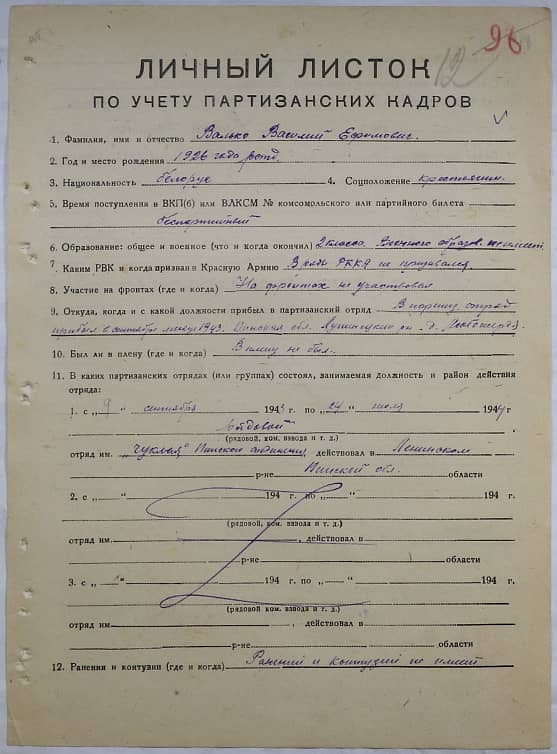 96
12
ЛИЧНЫЙ ЛИСТОК
ПО УЧЕТУ ПАРТИЗАНСКИХ КАДРОВ
1. Фамилия, имя и отчество Валько Василий Ефимович.
2. Год и место рождения 1926 года рожд.
3. Национальность белорус 4. Соцположение крестьянин.
5. Время поступления в ВКП(б) или ВЛКСМ № комсомольского или партийного билета
беспартийный
6. Образование: общее и военное (что и когда окончил) 2 класса. Военного образов. не имеет
7. Каким РВК и когда призван в Красную Армию В ряды РККА не призывался.
8. Участие на фронтах (где и когда) На фронтах не участвовал
9. Откуда, когда и с какой должности прибыл в партизанский отряд В партиз. отряд
прибыл в сентябре 1943. Пинская обл. Лунинецкий р-н д.
10. Был ли в плену (где и когда) В плену не был.
11. В каких партизанских отрядах (или группах) состоял, занимаемая должность и район действия
отряда:
1. с „9" сентября 1943 г. по „24" июля 1944 г
Рядовой
(рядовой, ком. взвода и т. д.)
отряд им. "Чуклая" Пинского соединения действовал в Ленинском
р-не Пинской обл. области
2. с „ " 194 г. по „ " 194 г.
(рядовой, ком. взвода и т. д.)
отряд им , действовал в
р-не области
3. с „ " 194 г. по „ " 194 г.
(рядовой ком. взвода и т. д.)
отряд им , действовал в
р-не области
12. Ранения и контузии (где и когда) Ранений и контузий не имеет